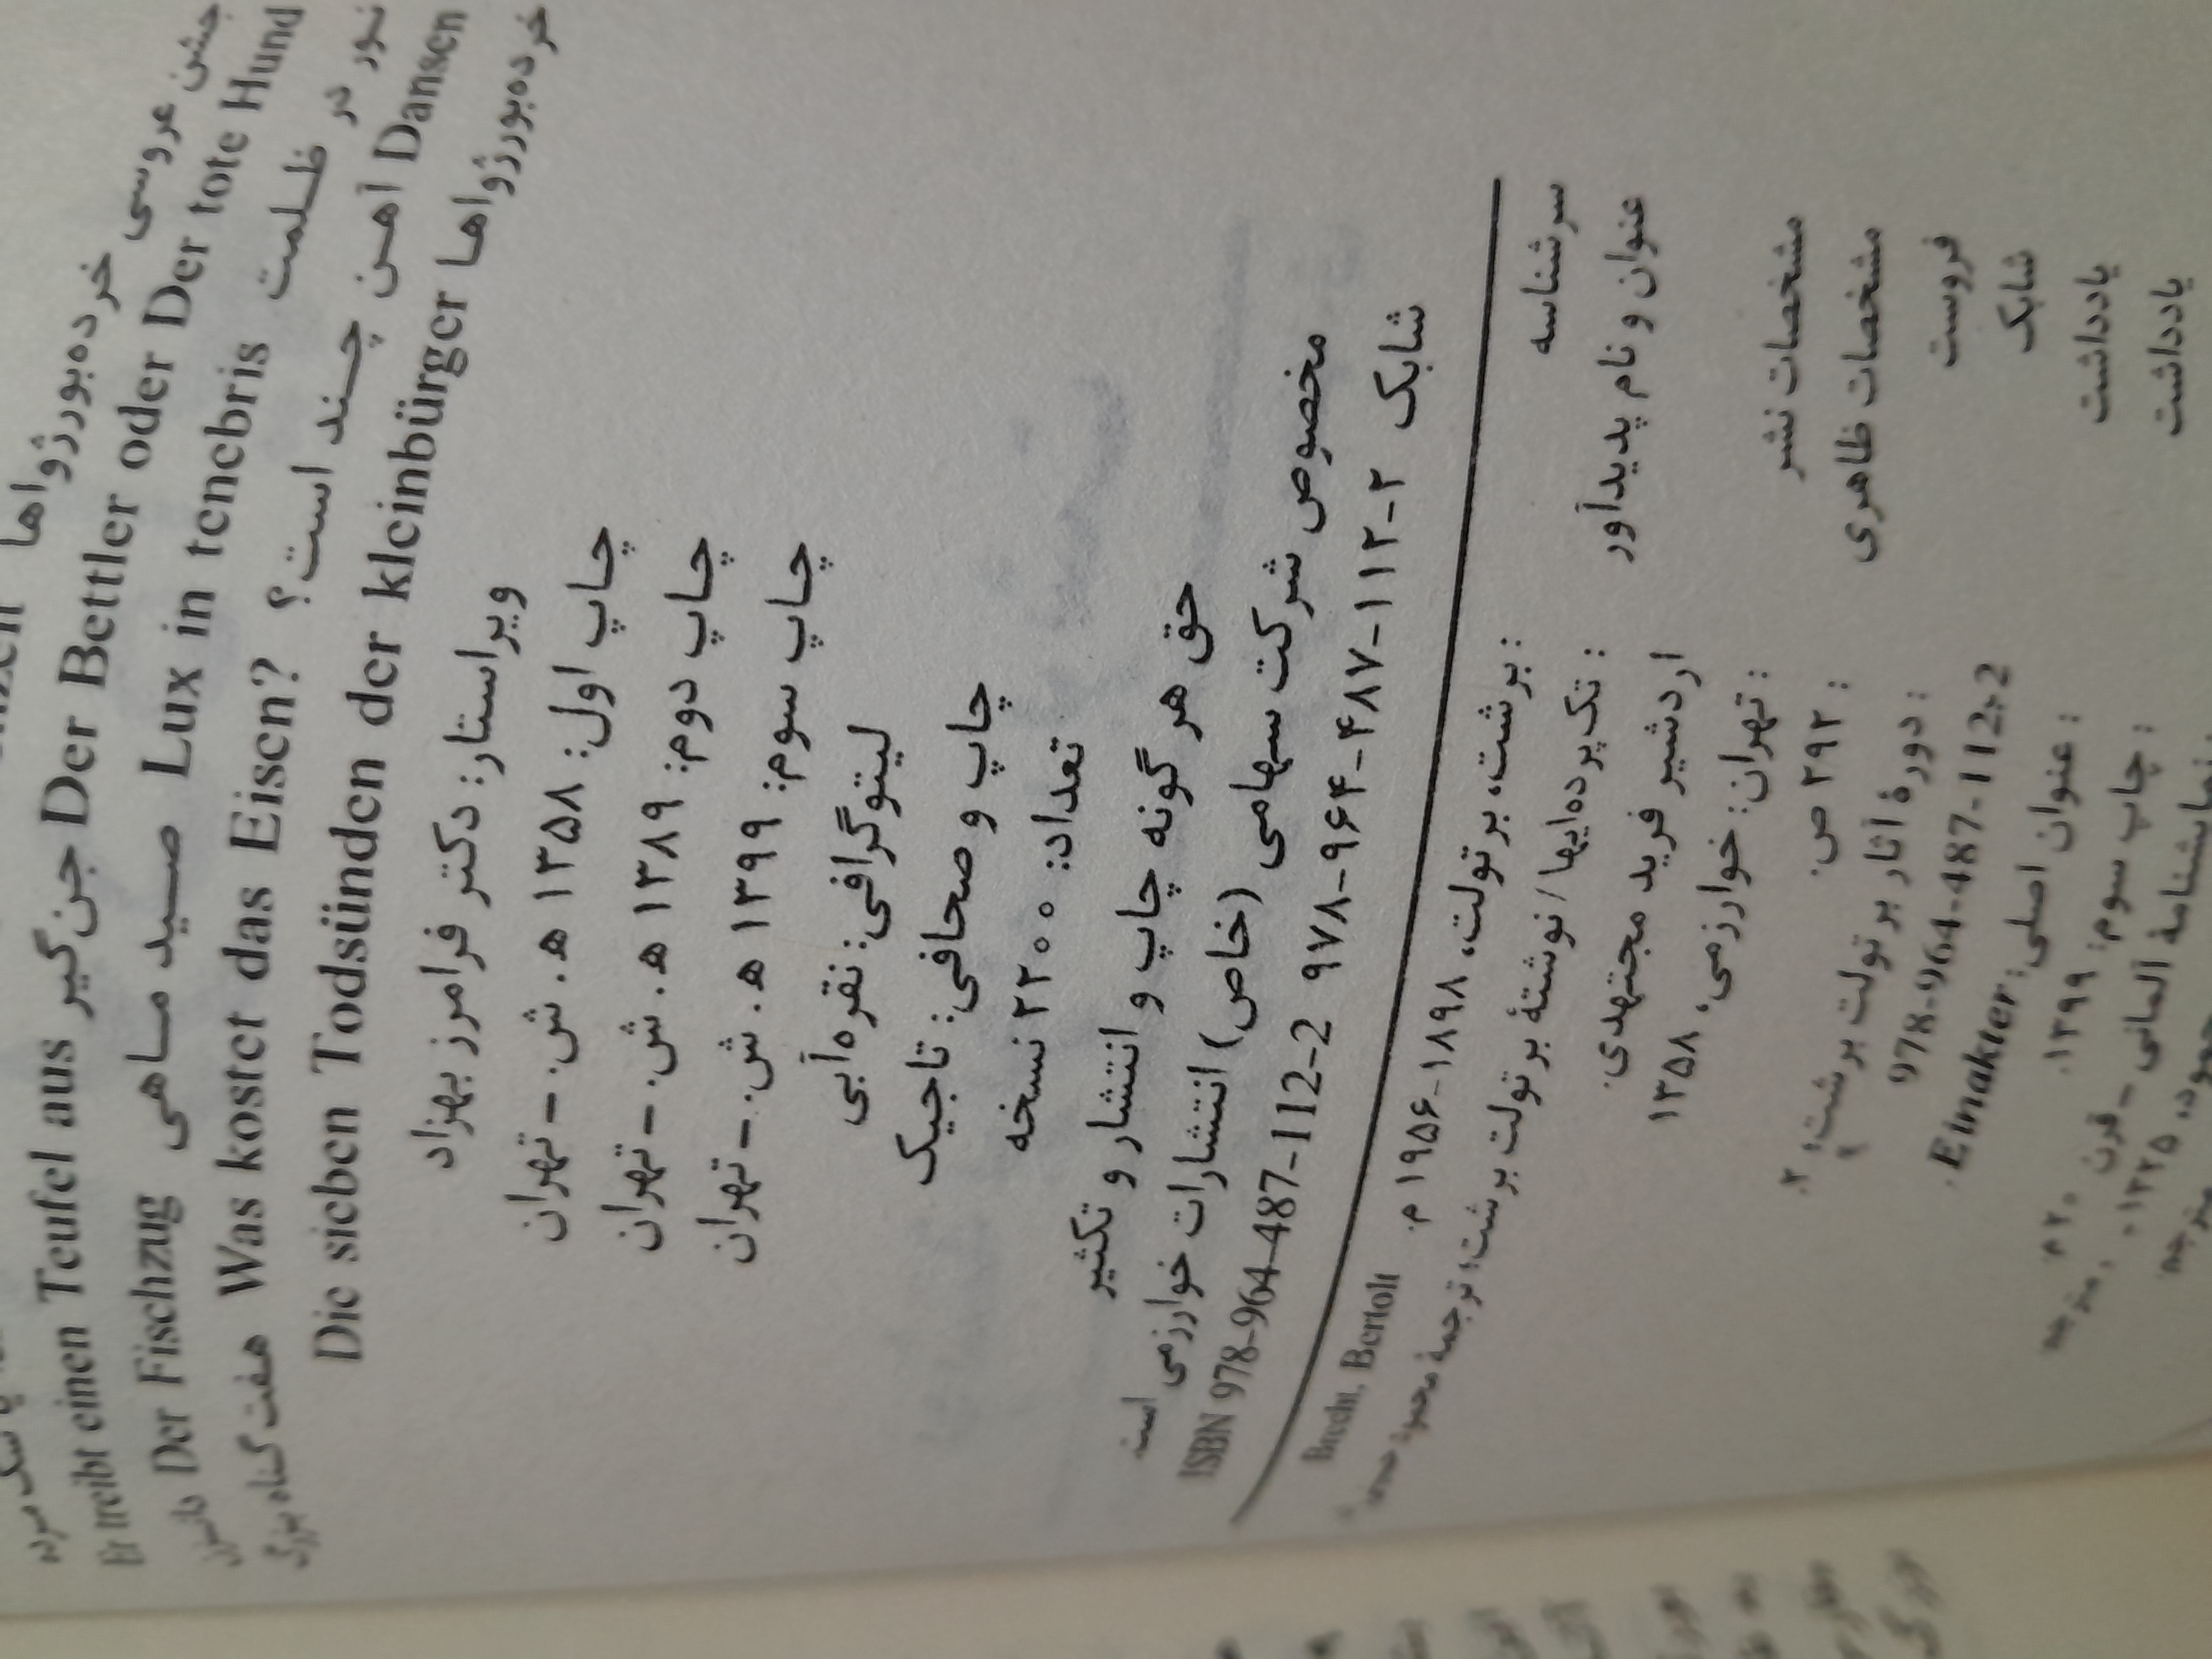 خرده‌بورژواها جشن عروسی
Er treibt einen Teufel aus جن‌گیر Der Bettler oder Der tote Hund
Der Fischzug صید ماهی Lux in tenebris نور در ظلمت
Was kostet das Eisen? چند است؟ آهن Dansen
هفت گناه بزرگ
Die sieben Todsünden der kleinbürger خرده‌بورژواها
ویراستار: دکتر فرامرز بهزاد
چاپ اول: ۱۳۵۸ ه‍. ش. – تهران
چاپ دوم: ۱۳۸۹ ه‍. ش. – تهران
چاپ سوم: ۱۳۹۹ ه‍. ش. – تهران
لیتوگرافی: نقره‌آبی
چاپ و صحافی: تاجیک
تعداد: ۲۲۰۰ نسخه
حق هر گونه چاپ و انتشار و تکثیر
مخصوص شرکت سهامی (خاص) انتشارات خوارزمی است
شابک ۲-۱۱۲-۴۸۷-۹۶۴-۹۷۸ ISBN 978-964-487-112-2
سرشناسه : برشت، برتولت، ۱۸۹۸-۱۹۵۶ م. Brecht, Bertolt
عنوان و نام پدیدآور : تک‌پرده‌ایها/ نوشتهٔ برتولت برشت؛ ترجمهٔ
اردشیر فرید مجتهدی.
مشخصات نشر : تهران: خوارزمی، ۱۳۵۸
مشخصات ظاهری : ۲۹۲ ص.
فروست : دورهٔ آثار برتولت برشت؛ ۲.
شابک 978-964-487-112-2
یادداشت : عنوان اصلی: Einakter.
یادداشت : چاپ سوم: ۱۳۹۹.
نمایشنامهٔ آلمانی – قرن ۲۰ م
۱۳۲۵، مترجم